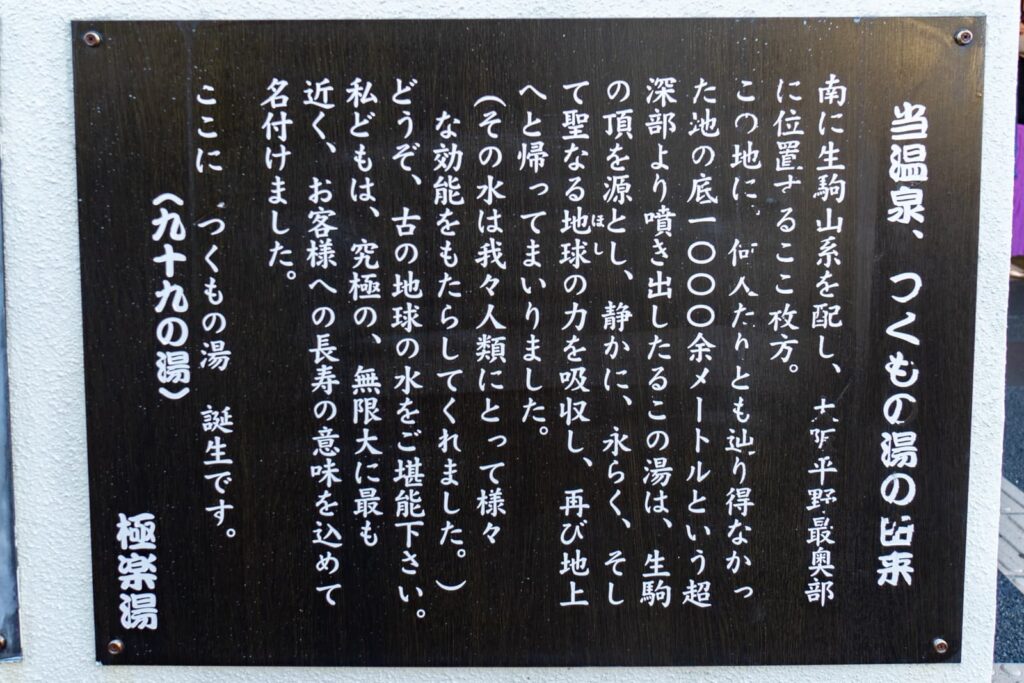 当温泉、つくもの湯の由来
南に生駒山系を配し、大阪平野最奥部
に位置するここ枚方。
この地に、何人たりとも辿り得なかっ
た池の底一〇〇〇余メートルという超
深部より噴き出したるこの湯は、生駒
の頂を源とし、静かに、永らく、そし
て聖なる地球の力を吸収し、再び地上
ほし
へと帰ってまいりました。
(その水は我々人類にとって様々
な効能をもたらしてくれました。)
どうぞ、古の地球の水をご堪能下さい。
私どもは、究極の、無限大に最も
近く、お客様への長寿の意味を込めて
名付けました。
ここに つくもの湯 誕生です。
(九十九の湯)
極楽湯